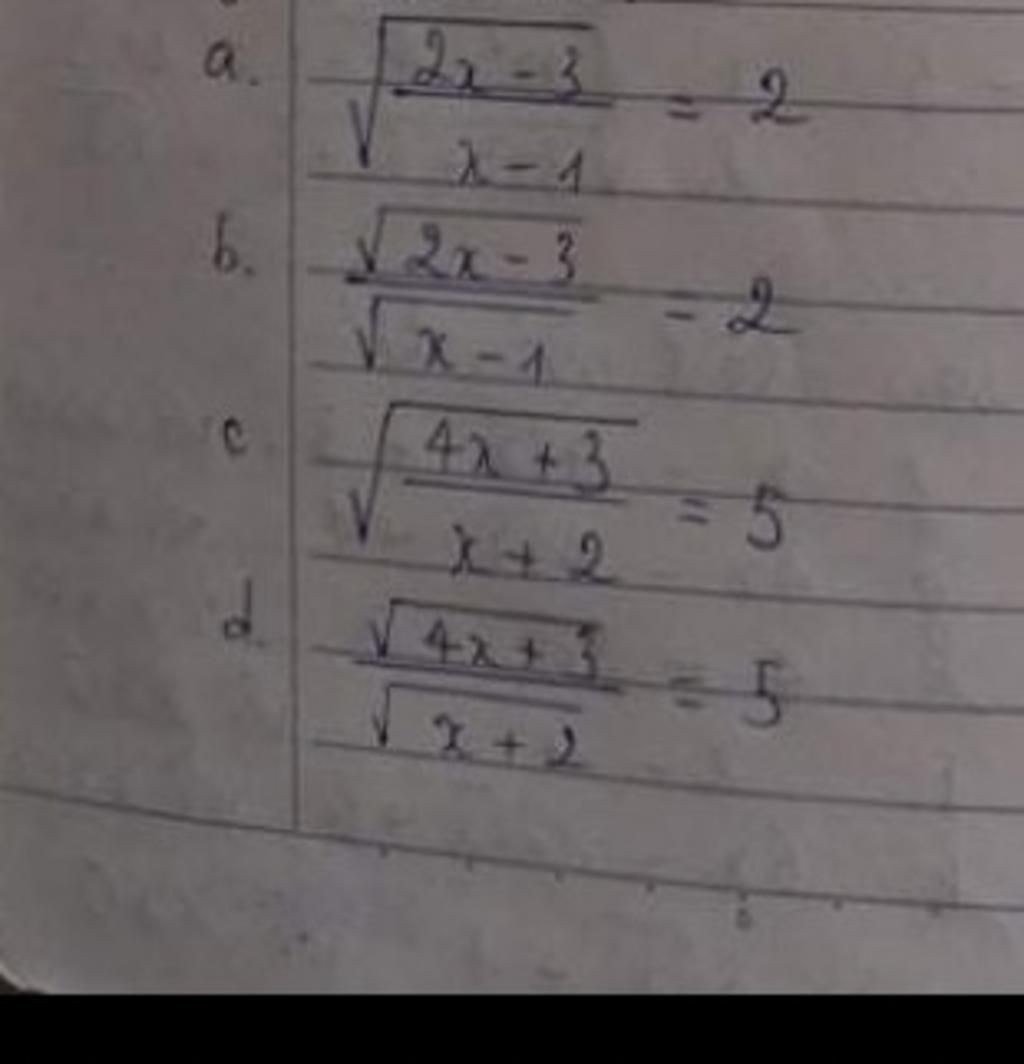 a. √((2x - 3)/(x - 1)) = 2
b. √(2x - 3)/√(x - 1) = 2
c √((4x + 3)/(x + 2)) = 5
d √(4x + 3)/√(x + 2) = 5